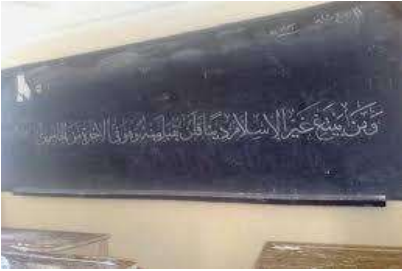 وَمَن يَبْتَغِ غَيْرَ الْإِسْلَامِ دِينًا فَلَن يُقْبَلَ مِنْهُ وَهُوَ فِي الْآخِرَةِ مِنَ الْخَاسِرِينَ